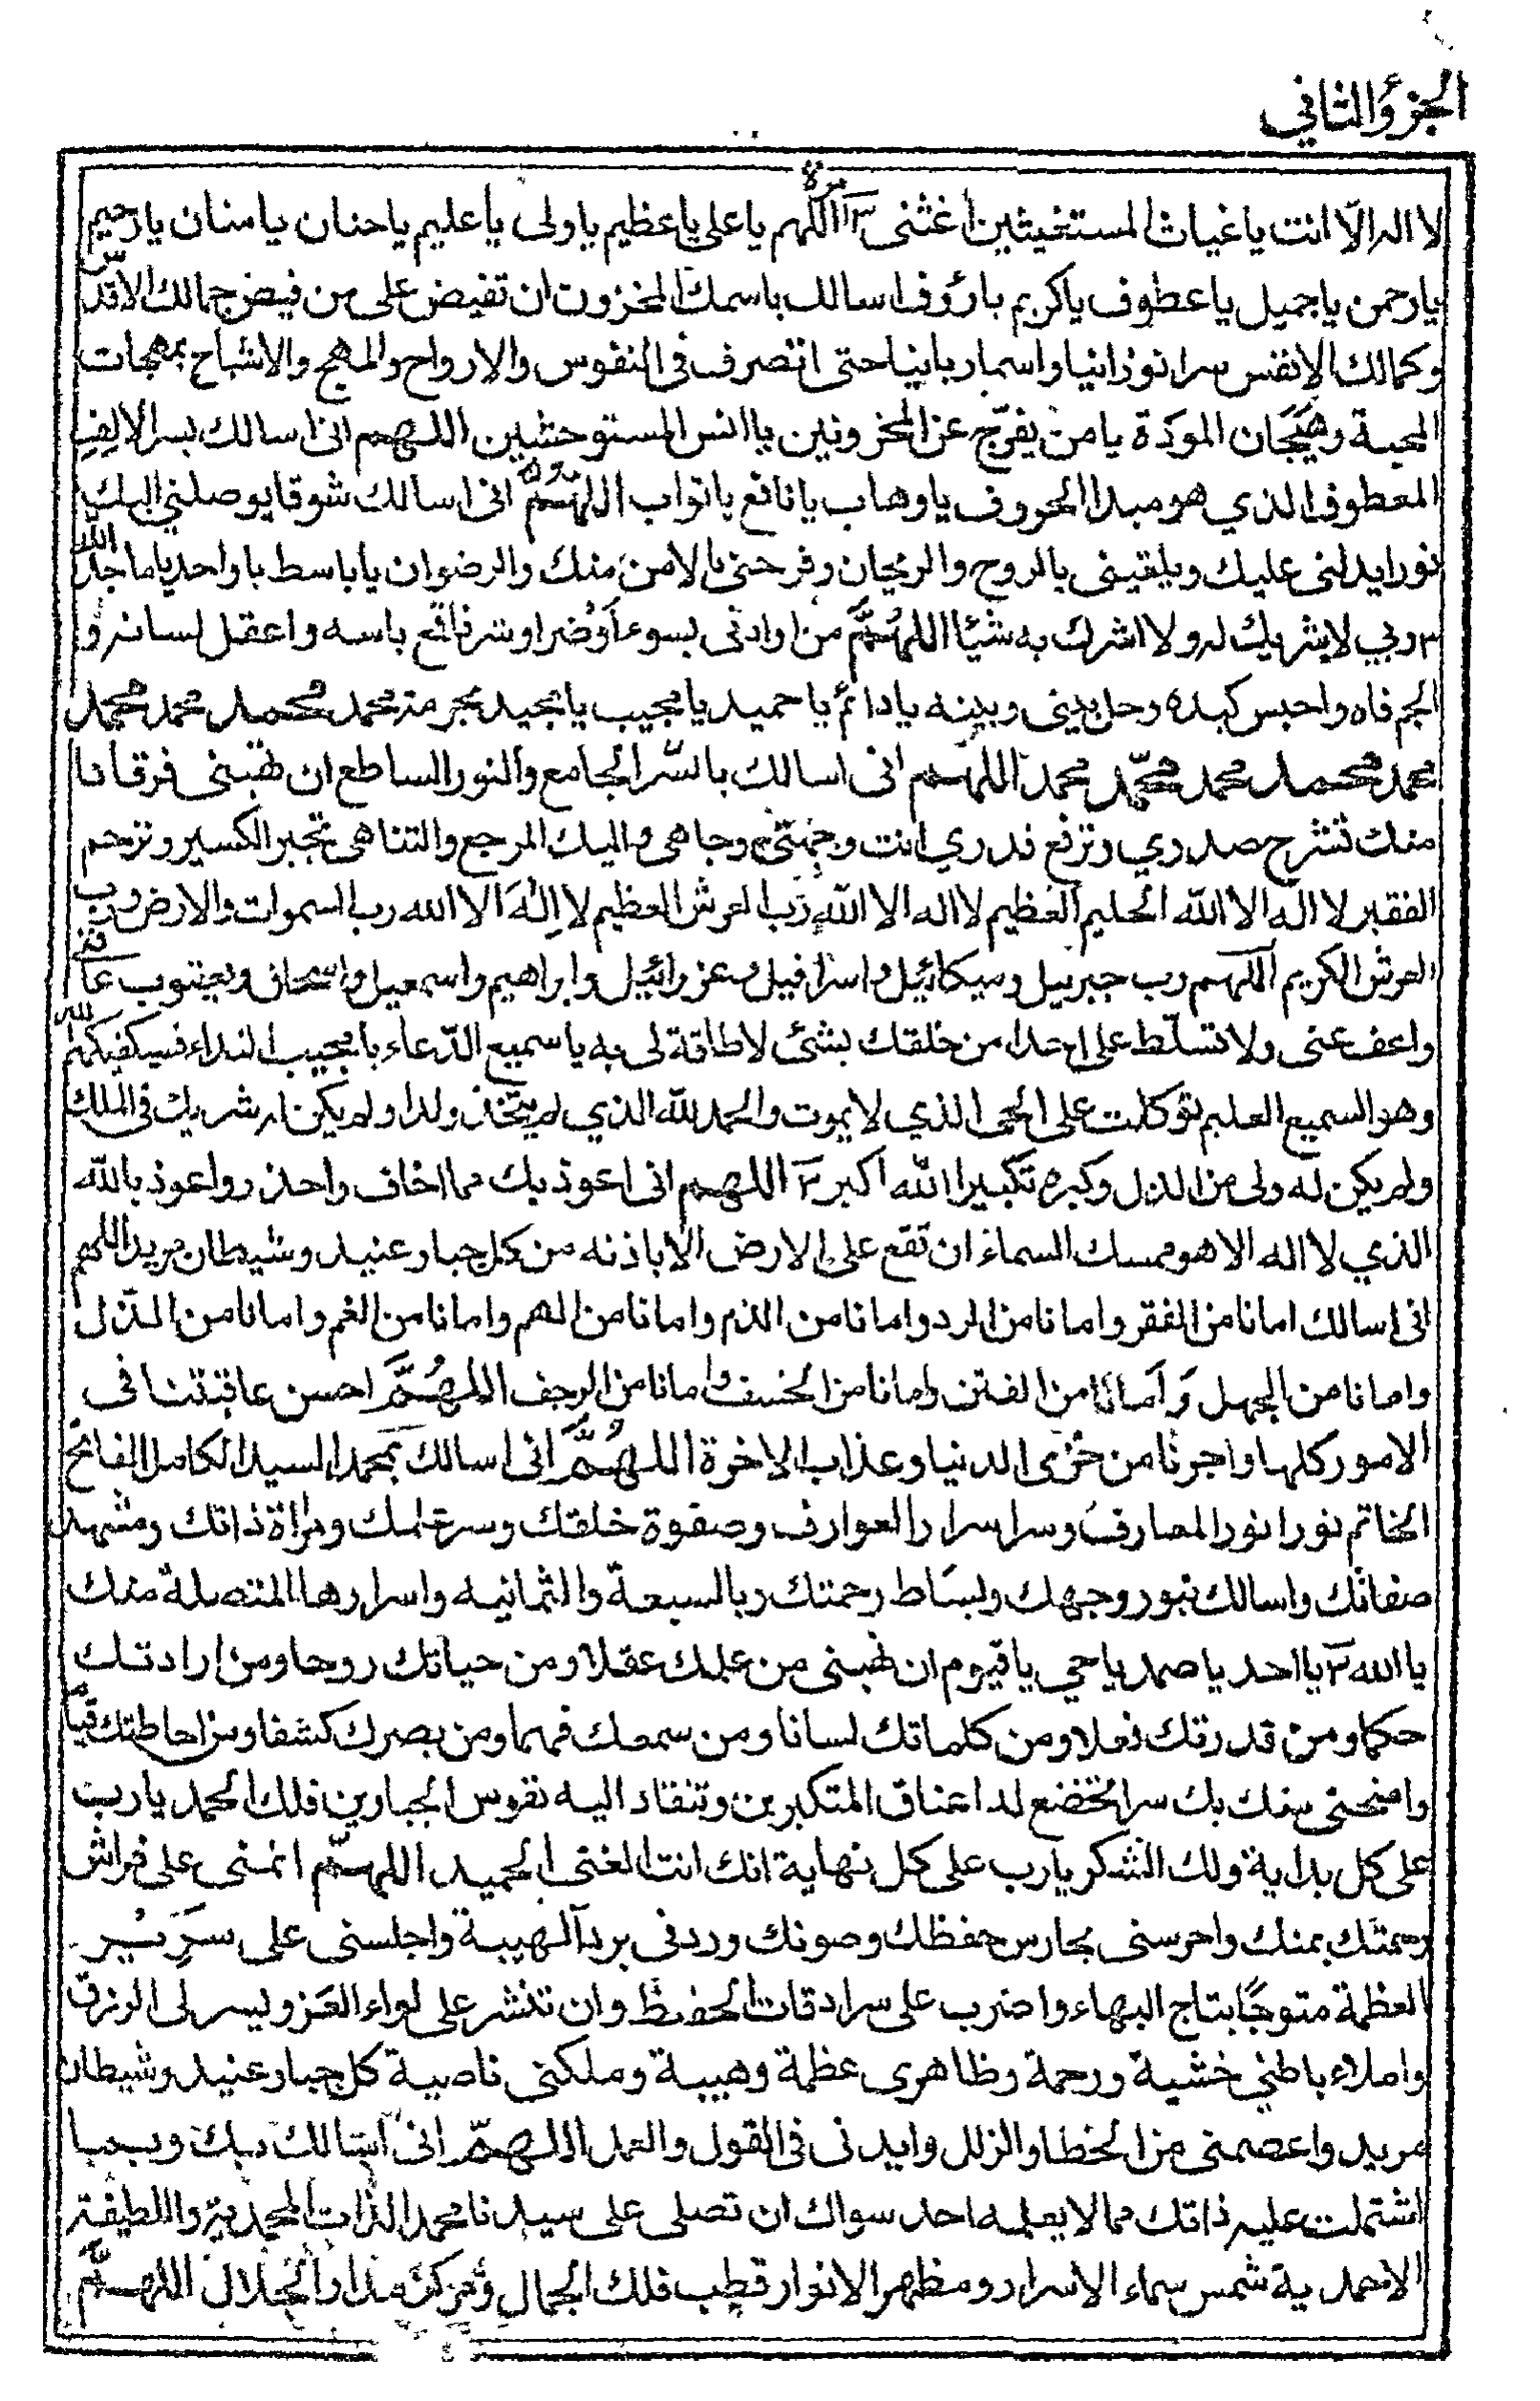 الجزؤالثاني
لا اله الّا انت يا غياث المستغيثين اغثنى ٣ مرة اللّهم يا على يا عظيم يا ولى يا عليم يا حنان يا منان يا رحيم
يا رحمن يا جميل يا عطوف يا كريم يا رؤوف اسالك باسمك المخزون ان تفيض على من فيض جمالك الاقدس
وكمالك الانفس سرا نورانيا واسما ربانيا حتى اتصرف فى النفوس والارواح والمهج والاشباح بمهجات
المحبة وهيجان المودة يا من يفرّج عن المحزونين يا انس المستوحشين اللهم انى اسالك بسر الالف
المعطوف الذي هو مبدا الحروف يا وهاب يا نافع يا تواب اللهم انى اسالك شوقا يوصلني اليك
نورا يدلنى عليك ويلقينى بالروح والريحان وفرحنى بالامن منك والرضوان يا باسط يا واحد يا ماجد الله
٣ ربي لا شريك له ولا اشرك به شيئا اللهُمَّ من ارادنى بسوء أو ضر او شر فاقمع باسه واعقل لسانه و
الجم فاه واحبس كيده وحل بينى وبينه يا دائم يا حميد يا مجيب يا مجيد بحرمة محمد محمد محمد محمد
محمد محمد محمد محمّد محمد اللهم انى اسالك بالسّر الجامع والنور الساطع ان تهبنى فرقانا
منك تشرح صدري وترفع قدري انت وجهتى وجاهى واليك المرجع والتناهى تجبر الكسير وترحم
الفقير لا اله الا الله الحليم العظيم لا اله الا الله رب العرش العظيم لا اله الا الله رب السموات والارض ورب
العرش الكريم اللهم رب جبريل وميكائيل واسرافيل وعزرائيل وابراهيم واسمعيل واسحاق ويعقوب عافنى
واعف عنى ولا تسلّط على احدا من خلقك بشئ لا طاقة لى به يا سميع الدّعاء يا مجيب النداء فسيكفيكهم الله
وهو السميع العليم توكلت على الحى الذي لا يموت والحمد لله الذي لم يتخذ ولدا ولم يكن له شريك فى الملك
ولم يكن له ولى من الذل وكبره تكبيرا الله اكبر ٣ اللهم انى اعوذ بك مما اخاف واحذر واعوذ بالله
الذي لا اله الا هو ممسك السماء ان تقع على الارض الا باذنه من كل جبار عنيد وشيطان مريد اللهم
انى اسالك امانا من الفقر وامانا من الرد وامانا من الذم وامانا من الهم وامانا من الغم وامانا من الذل
وامانا من الجهل وَامانا من الفتن وامانا من الخسف وامانا من الرجف اللهُمَّ احسن عاقبتنا فى
الامور كلها واجرنا من خزى الدنيا وعذاب الاخرة اللهُمَّ انى اسالك بمحمد السيد الكامل الفاتح
الخاتم نور انور المعارف وسر اسرار العوارف وصفوة خلقك وسر علمك ومراة ذاتك ومشهد
صفاتك واسالك بنور وجهك وبساط رحمتك وبالسبعة والثمانيه واسرارها المتصلة منك
يا الله ٣ يا احد يا صمد يا حي يا قيوم ان تهبنى من علمك عقلا ومن حياتك روحا ومن ارادتك
حكما ومن قدرتك فعلا ومن كلماتك لسانا ومن سمعك فهما ومن بصرك كشفا ومن احاطتك قياما
وامنحنى منك بك سرا تخضع له اعناق المتكبرين وتنقاد اليه نفوس الجبارين فلك الحمد يا رب
على كل بداية ولك الشكر يا رب على كل نهاية انك انت الغنى الحميد اللهم انمنى على فراش
رحمتك بمنك واحرسنى بحارس حفظك وصونك وردنى بردآ الهيبة واجلسنى على سَرِيْر
العظمة متوجًا بتاج البهاء واضرب على سرادقات الحفظ وان تنشر على لواء العز ويسر لى الرزق
واملاء باطني خشية ورحمة وظاهرى عظمة وهيبة وملكنى ناصية كل جبار عنيد وشيطان
مريد واعصمنى من الخطا والزلل وايدنى فى القول والعمل اللهمّ انى اسالك بك وبما
اشتملت عليه ذاتك مما لا يعلمه احد سواك ان تصلى على سيدنا محمد الذات المحمدية واللطيفة
الاحمدية شمس سماء الاسرار ومظهر الانوار قطب فلك الجمال ومركز مدار الجلال اللهمَّ